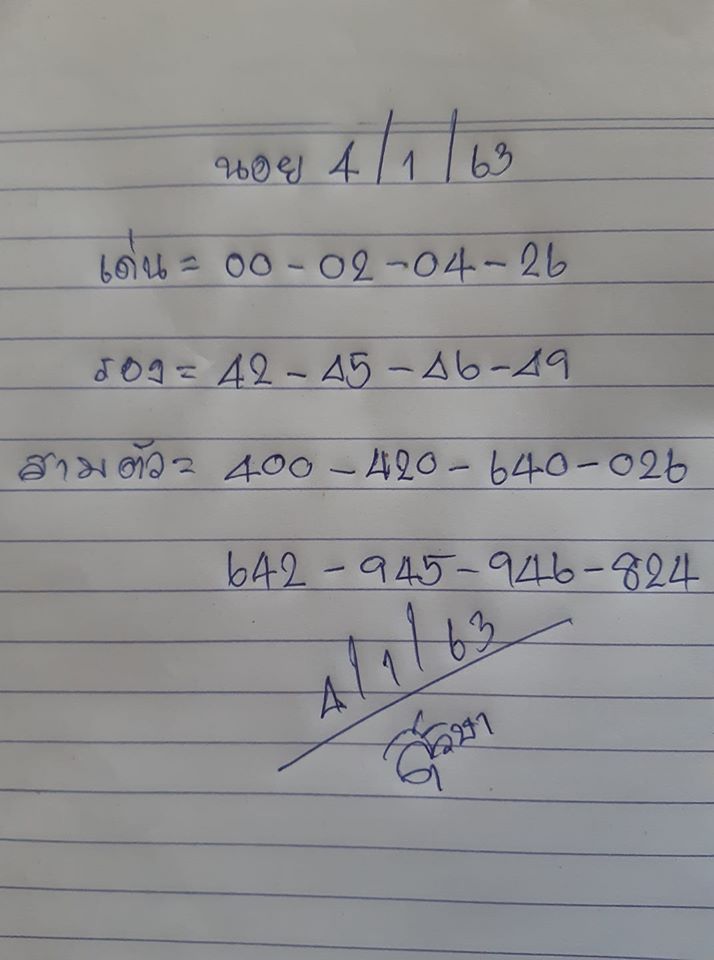 นอย 4/1/63
เด่น = 00 - 02 - 04 - 26
รอง = 42 - 45 - 46 - 49
สามตัว = 400 - 420 - 640 - 026
642 - 945 - 946 - 824
4/1/63